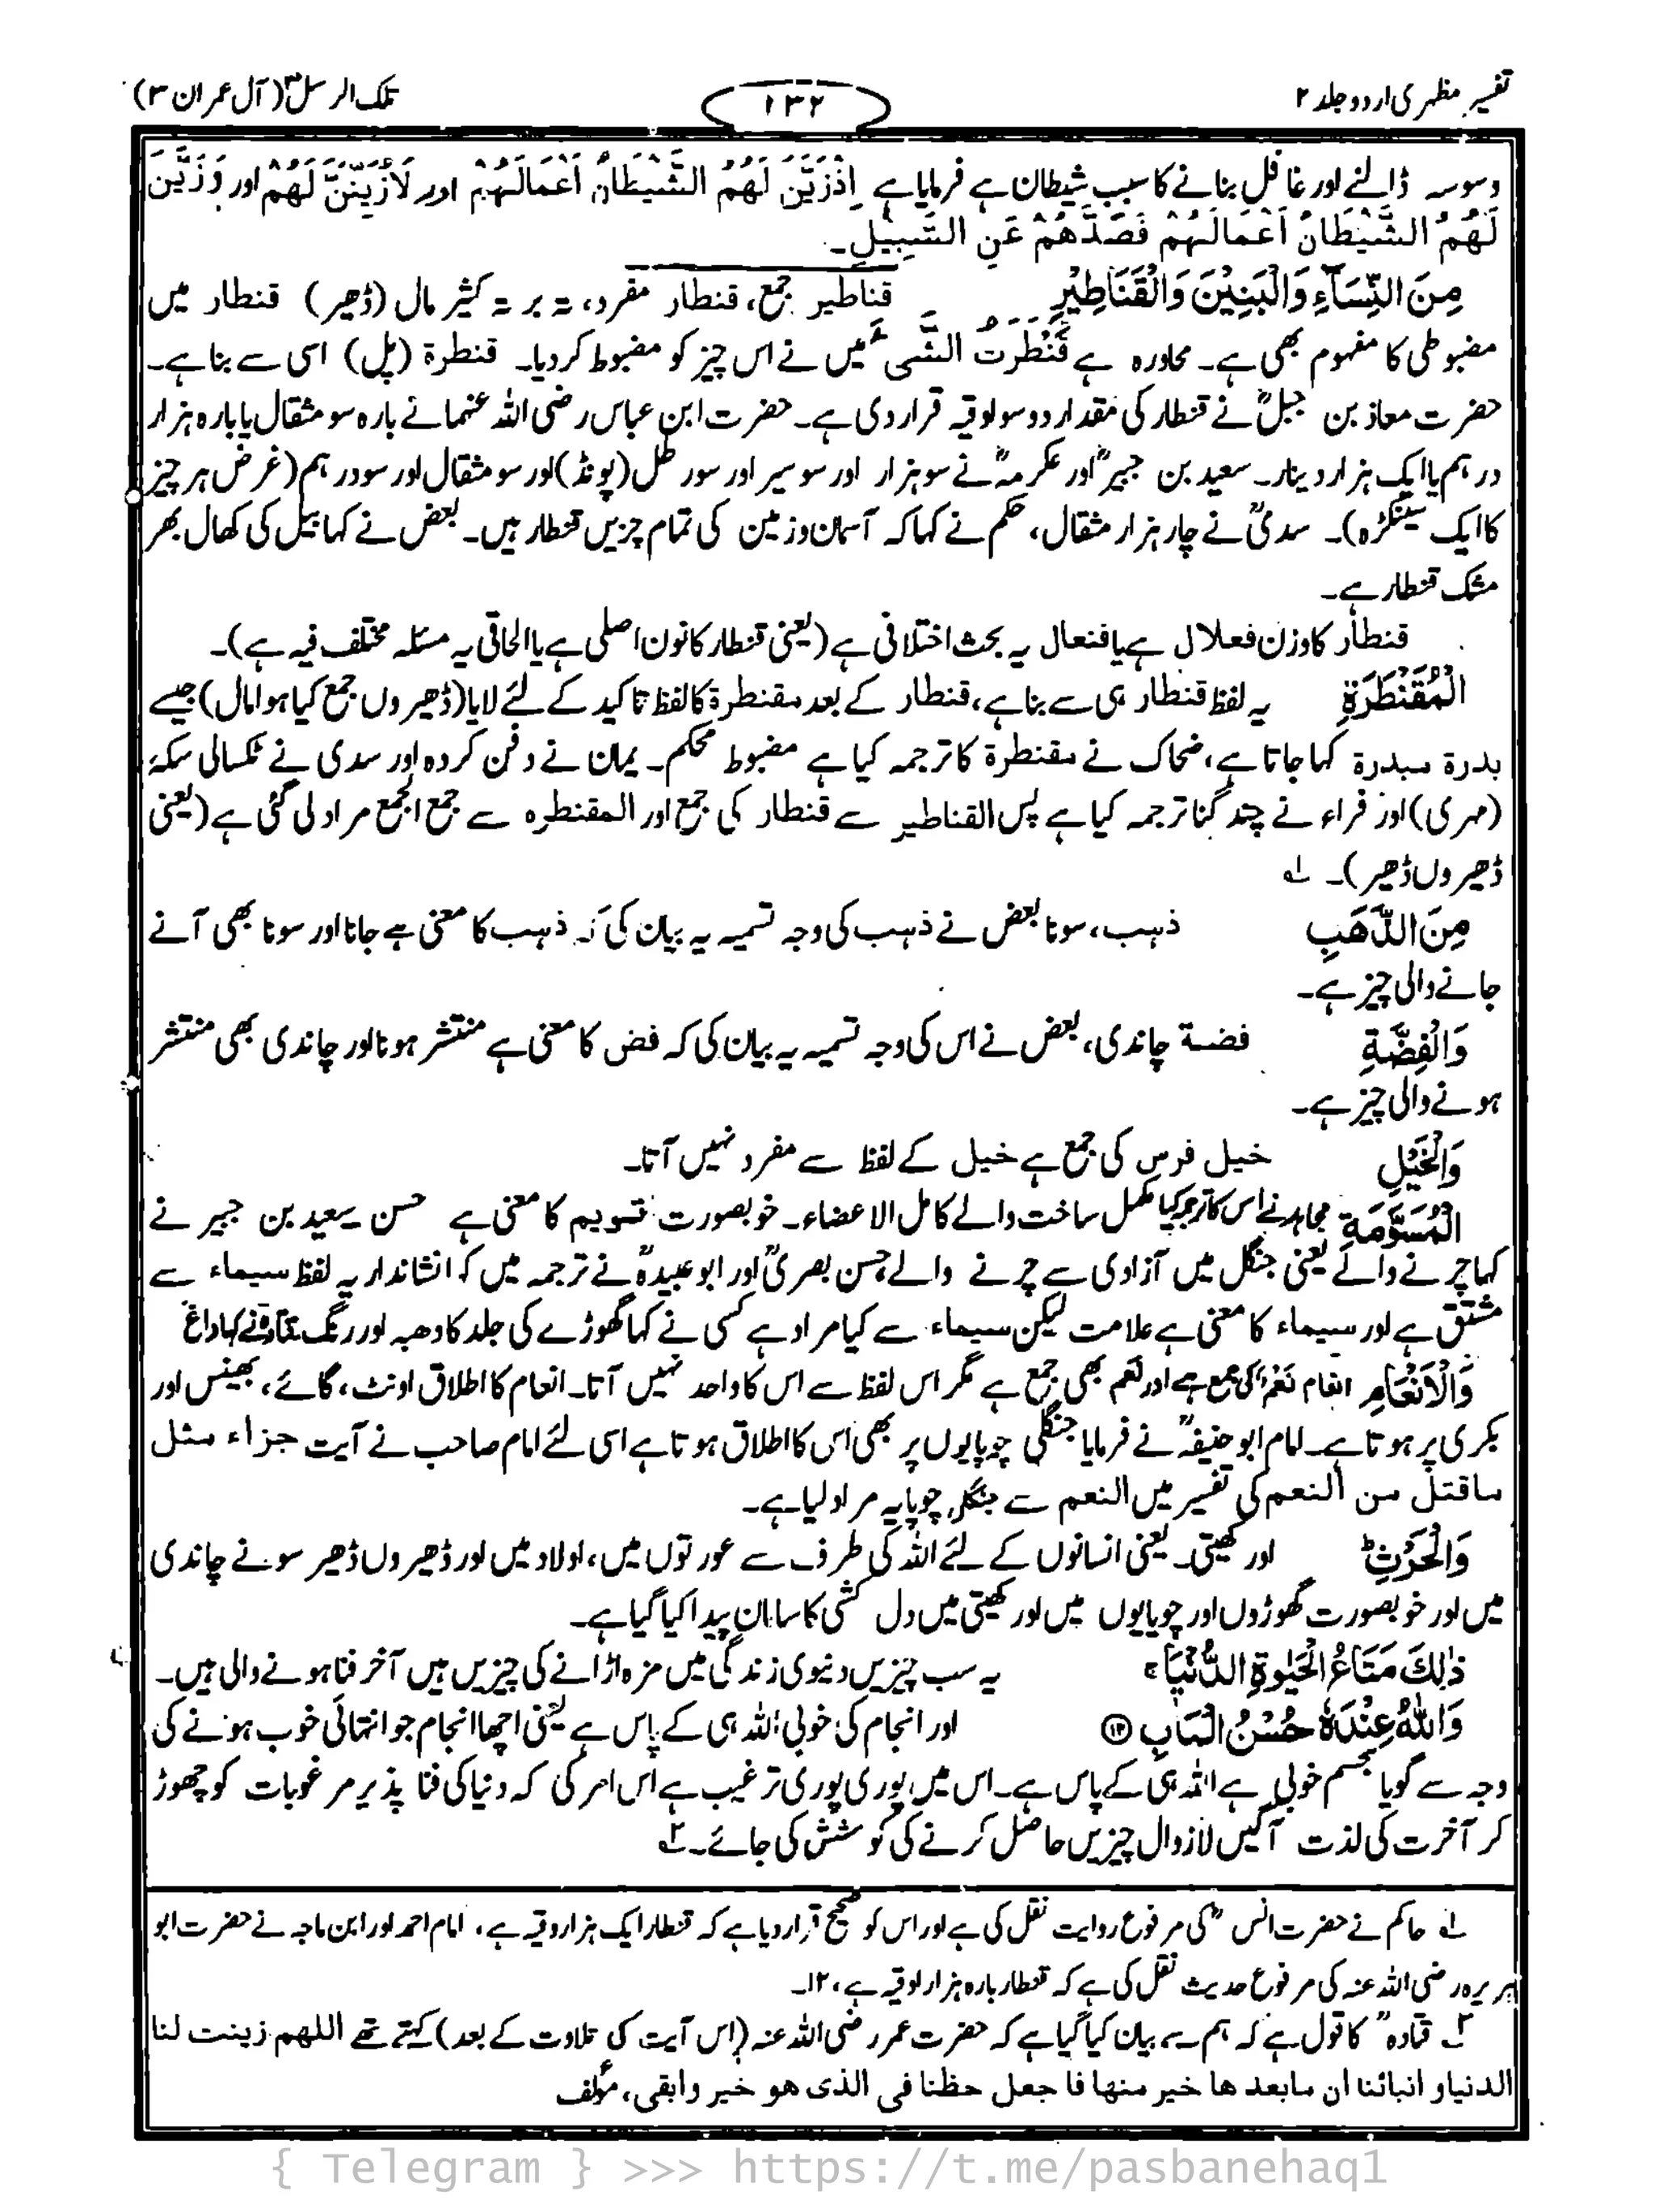 تفسیر مظہری اردو جلد ۲
۱۳۲
تلک الرسل۳ (آل عمران ۳)
وسوسہ ڈالنے اور غافل بنانے کا سبب شیطان ہے فرمایا ہے اِذْزَیَّنَ لَهُمُ الشَّیْطَانُ اَعْمَالَهُمْ اور لَأُزَیِّنَنَّ لَهُمْ اور وَزَیَّنَ
لَهُمُ الشَّیْطَانُ اَعْمَالَهُمْ فَصَدَّهُمْ عَنِ السَّبِیْلِ۔
مِنَ النِّسَآءِ وَالْبَنِیْنَ وَالْقَنَاطِیْرِ قناطیر جمع، قنطار مفرد، تہ بر تہ کثیر مال (ڈھیر) قنطار میں
مضبوطی کا مفہوم بھی ہے۔ محاورہ ہے قَنْطَرْتُ الشَّیءَ میں نے اس چیز کو مضبوط کردیا۔ قنطرة (پل) اسی سے بنا ہے۔
حضرت معاذ بن جبلؓ نے قنطار کی مقدار دو سو اوقیہ قرار دی ہے۔ حضرت ابن عباس رضی اللہ عنہما نے بارہ سو مثقال یا بارہ ہزار
درہم یا ایک ہزار دینار۔ سعید بن جبیرؒ اور عکرمہؒ نے سو ہزار اور سو سیر اور سو رطل (پونڈ) اور سو مثقال اور سو درہم (غرض ہر چیز
کا ایک سینکڑہ)۔ سدیؒ نے چار ہزار مثقال، حکم نے کہا کہ آسمان و زمین کی تمام چیزیں قنطار ہیں۔ بعض نے کہا بیل کی کھال بھر
مشک قنطار ہے۔
قنطار کا وزن فعلال ہے یا فنعال یہ بحث اختلافی ہے (یعنی قنطار کا نون اصلی ہے یا الحاقی یہ مسئلہ مختلف فیہ ہے)۔
الْمُقَنْطَرَةِ یہ لفظ قنطار ہی سے بنا ہے، قنطار کے بعد مقنطرة کا لفظ تاکید کے لئے لایا (ڈھیروں جمع کیا ہوا مال) جیسے
بدرة مبدرة کہا جاتا ہے، ضحاک نے مقنطرة کا ترجمہ کیا ہے مضبوط محکم۔ یمان نے دفن کردہ اور سدی نے ٹکسالی سکۂ
(مہری) اور فراء نے چند گنا ترجمہ کیا ہے پس القناطیر سے قنطار کی جمع اور المقنطرہ سے جمع الجمع مراد لی گئی ہے (یعنی
ڈھیروں ڈھیر)۔ ۱؎
مِنَ الذَّهَبِ ذہب، سونا بعض نے ذہب کی وجہ تسمیہ یہ بیان کی کہ ذہب کا معنی ہے جانا اور سونا بھی آنے
جانے والی چیز ہے۔
وَالْفِضَّةِ فضة چاندی، بعض نے اس کی وجہ تسمیہ یہ بیان کی کہ فض کا معنی ہے منتشر ہونا اور چاندی بھی منتشر
ہونے والی چیز ہے۔
وَالْخَیْلِ خیل فرس کی جمع ہے خیل کے لفظ سے مفرد نہیں آتا۔
الْمُسَوَّمَةِ مجاہد نے اس کا ترجمہ کیا مکمل ساخت والے کامل الاعضاء۔ خوبصورت تسویم کا معنی ہے حسن سعید بن جبیر نے
کہا چرنے والے یعنی جنگل میں آزادی سے چرنے والے، حسن بصریؒ اور ابو عبیدہؒ نے ترجمہ میں کہا نشاندار یہ لفظ سیماء سے
مشتق ہے اور سیماء کا معنی ہے علامت لیکن سیماء سے کیا مراد ہے کسی نے کہا گھوڑے کی جلد کا دھبہ اور رنگ قتادہ نے کہا داغ
وَالْاَنْعَامِ انعام نَعَمٌ کی جمع ہے اور نعم بھی جمع ہے مگر اس لفظ سے اس کا واحد نہیں آتا۔ انعام کا اطلاق اونٹ، گائے، بھینس اور
بکری پر ہوتا ہے۔ امام ابو حنیفہؒ نے فرمایا جنگلی چوپایوں پر بھی اس کا اطلاق ہوتا ہے اسی لئے امام صاحب نے آیت جزاء مثل
ماقتل من النعم کی تفسیر میں النعم سے جنگلی چوپایہ مراد لیا ہے۔
وَالْحَرْثِ ؕ اور کھیتی۔ یعنی انسانوں کے لئے اللہ کی طرف سے عورتوں میں، اولاد میں اور ڈھیروں ڈھیر سونے چاندی
میں اور خوبصورت گھوڑوں اور چوپایوں میں اور کھیتی میں دل کشی کا سامان پیدا کیا گیا ہے۔
ذٰلِكَ مَتَاعُ الْحَیٰوةِ الدُّنْیَا ۚ یہ سب چیزیں دنیوی زندگی میں مزہ اڑانے کی چیزیں ہیں آخر فنا ہونے والی ہیں۔
وَاللّٰهُ عِنْدَهٗ حُسْنُ الْمَاٰبِ ⑭ اور انجام کی خوبی اللہ ہی کے پاس ہے یعنی اچھا انجام جو انتہائی خوب ہونے کی
وجہ سے گویا مجسم خوبی ہے اللہ ہی کے پاس ہے۔ اس میں پوری پوری ترغیب ہے اس امر کی کہ دنیا کی فنا پذیر مرغوبات کو چھوڑ
کر آخرت کی لذت آگیں لازوال چیزیں حاصل کرنے کی کوشش کی جائے۔ ۲؎
۱؎ حاکم نے حضرت انسؓ کی مرفوع روایت نقل کی ہے اور اس کو صحیح قرار دیا ہے کہ قنطار ایک ہزار اوقیہ ہے، امام احمد اور ابن ماجہ نے حضرت ابو
ہریرہ رضی اللہ عنہ کی مرفوع حدیث نقل کی ہے کہ قنطار بارہ ہزار اوقیہ ہے، ۱۲۔
۲؎ قتادہؒ کا قول ہے کہ ہم سے بیان کیا گیا ہے کہ حضرت عمر رضی اللہ عنہ (اس آیت کی تلاوت کے بعد) کہتے تھے اللهم زینت لنا
الدنیاو انبائنا ان مابعد ها خیر منها فا جعل حظنا فی الذی هو خیر وابقی، مؤلف
{ Telegram } >>> https://t.me/pasbanehaq1